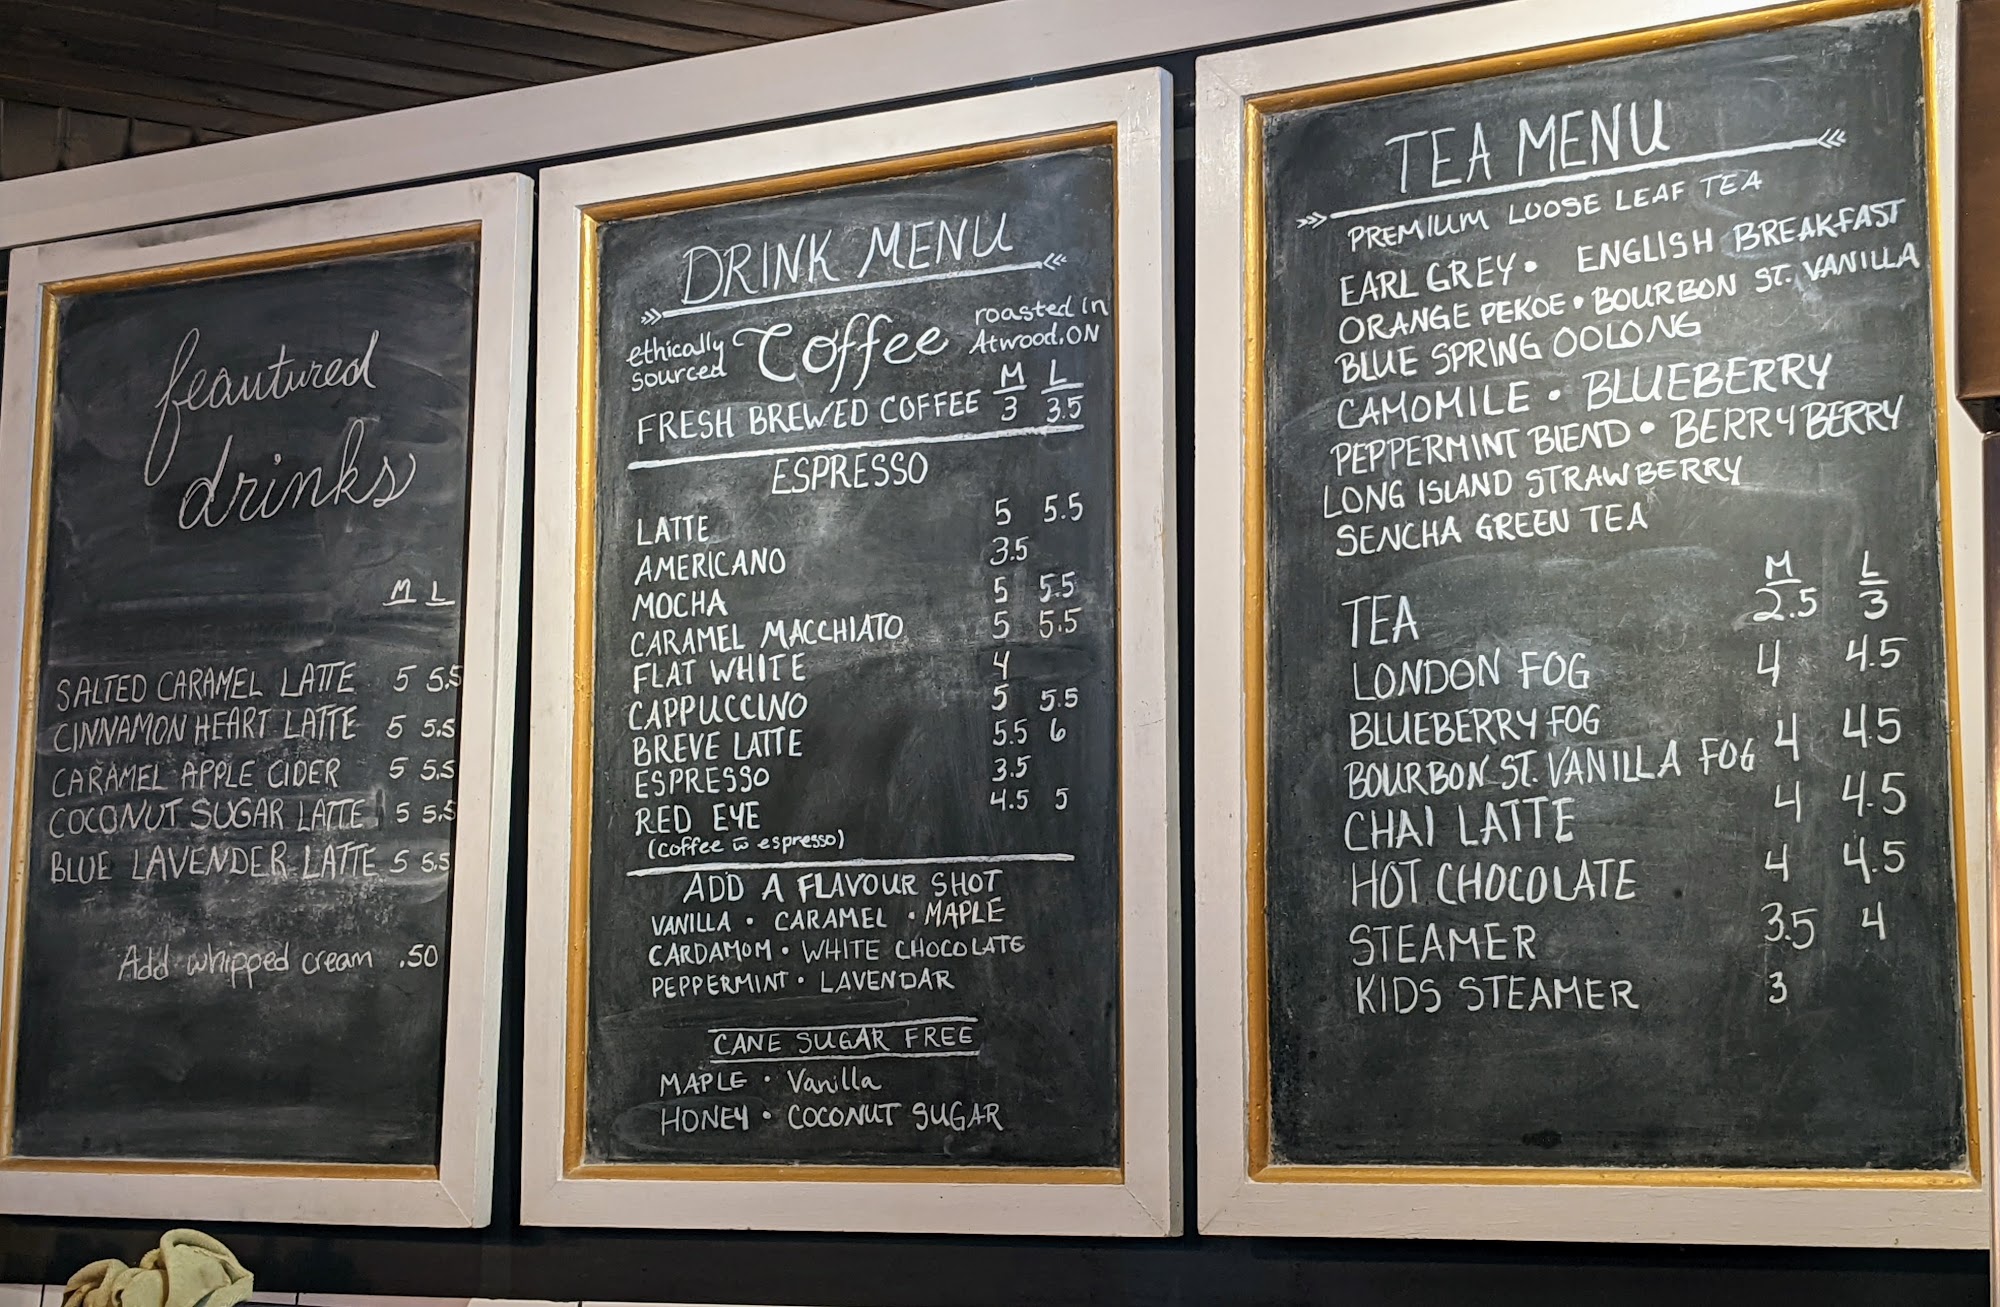 feautured
drinks
M L
SALTED CARAMEL LATTE 5 5.5
CINNAMON HEART LATTE 5 5.5
CARAMEL APPLE CIDER 5 5.5
COCONUT SUGAR LATTE 5 5.5
BLUE LAVENDER LATTE 5 5.5
Add whipped cream .50
DRINK MENU
ethically sourced Coffee roasted in Atwood, ON
M L
FRESH BREWED COFFEE 3 3.5
ESPRESSO
LATTE 5 5.5
AMERICANO 3.5
MOCHA 5 5.5
CARAMEL MACCHIATO 5 5.5
FLAT WHITE 4
CAPPUCCINO 5 5.5
BREVE LATTE 5.5 6
ESPRESSO 3.5
RED EYE 4.5 5
(coffee w espresso)
ADD A FLAVOUR SHOT
VANILLA • CARAMEL • MAPLE
CARDAMOM • WHITE CHOCOLATE
PEPPERMINT • LAVENDAR
CANE SUGAR FREE
MAPLE • Vanilla
HONEY • COCONUT SUGAR
TEA MENU
PREMIUM LOOSE LEAF TEA
EARL GREY • ENGLISH BREAKFAST
ORANGE PEKOE • BOURBON ST. VANILLA
BLUE SPRING OOLONG
CAMOMILE • BLUEBERRY
PEPPERMINT BLEND • BERRY BERRY
LONG ISLAND STRAWBERRY
SENCHA GREEN TEA
M L
TEA 2.5 3
LONDON FOG 4 4.5
BLUEBERRY FOG
BOURBON ST. VANILLA FOG 4 4.5
CHAI LATTE 4 4.5
HOT CHOCOLATE 4 4.5
STEAMER 3.5 4
KIDS STEAMER 3